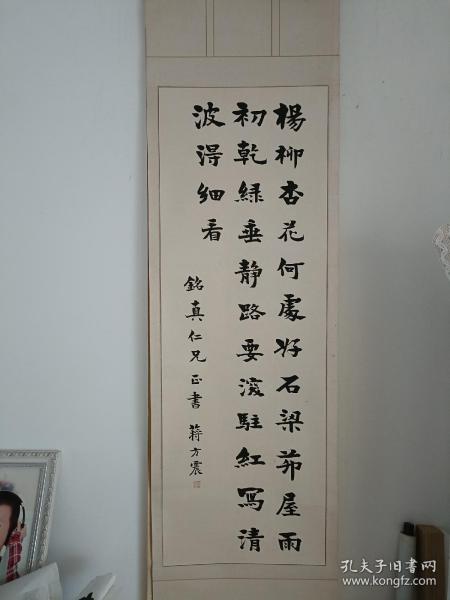 楊柳杏花何處好石梁茆屋雨
初乾綠垂静路要深駐紅寫清
波得細看
銘真仁兄正書 蔣方震
孔夫子旧书网
www.kongfz.com